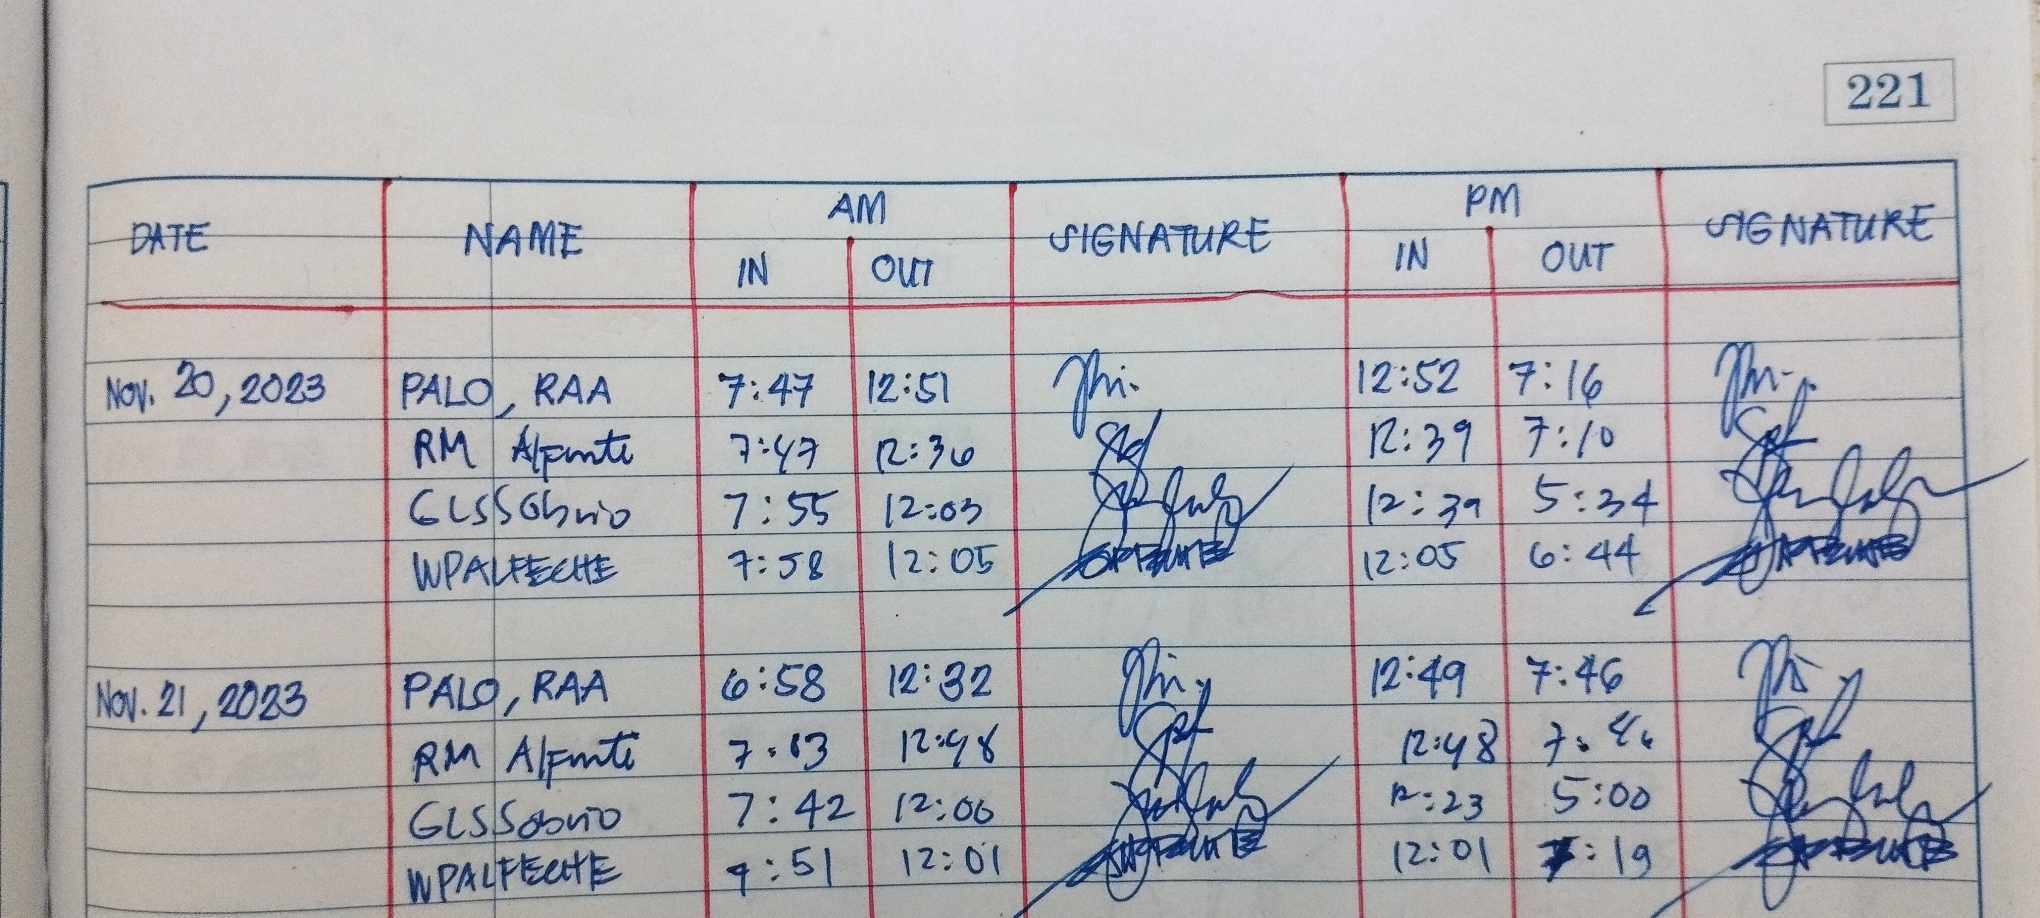 221
DATE NAME AM SIGNATURE PM SIGNATURE
IN OUT IN OUT
Nov. 20, 2023 PALO, RAA 7:47 12:51 12:52 7:16
RM Alfonte 7:47 12:36 12:39 7:10
GLSSobrio 7:55 12:03 12:39 5:34
WPALFECHE 7:58 12:05 12:05 6:44
Nov. 21, 2023 PALO, RAA 6:58 12:32 12:49 7:46
RM Alfonte 7:03 12:48 12:48
GLSSobrio 7:42 12:06 12:23 5:00
WPALFECHE 7:51 12:01 12:01 7:19